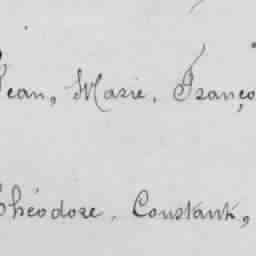 Jean, Marie, Franço
Théodore, Constant,